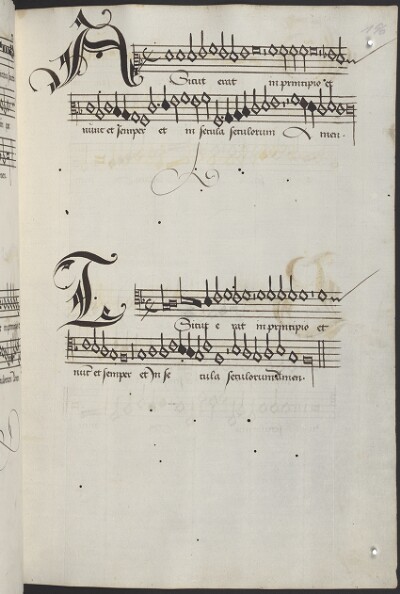 A
Sicut erat in principio et
nunc et semper et in secula seculorum Amen.
T
Sicut e rat in principio et
nuc et semper et in se cula seculorum amen.